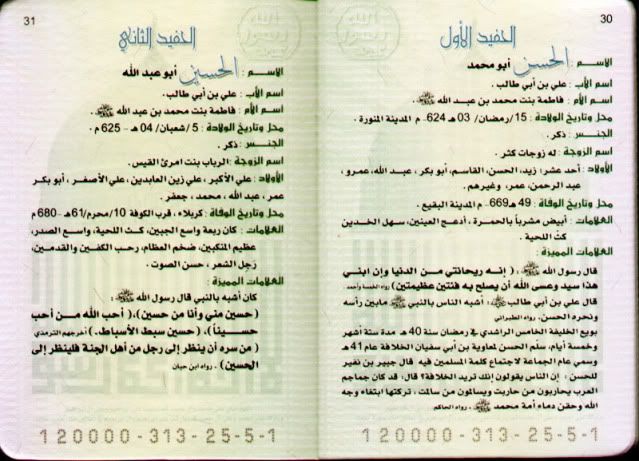 30
الحفيد الأول
الاسم : الحسن أبو محمد
اسم الأب : علي بن أبي طالب .
اسم الأم : فاطمة بنت محمد بن عبد الله ﷺ .
محل وتاريخ الولادة : 15/رمضان/ 03 هـ 624م المدينة المنورة .
الجنس : ذكر .
اسم الزوجة : له زوجات كثر .
الأولاد : أحد عشر: زيد، الحسن، القاسم، أبو بكر ، عبد الله، عمرو،
عبد الرحمن، عمر، وغيرهم .
محل وتاريخ الوفاة : 49 هـ669م المدينة البقيع .
العلامات : أبيض مشرباً بالحمرة ، أدعج العينين، سهل الخدين
كث اللحية .
العلامات المميزة :
قال رسول الله ﷺ : ( إنه ريحانتي من الدنيا وإن ابني
هذا سيد وعسى الله أن يصلح به فئتين عظيمتين )
قال علي بن أبي طالب : أشبه الناس بالنبي ﷺ مابين رأسه
ونحره الحسن. رواه الطبراني
بويع الخليفة الخامس الراشدي في رمضان سنة 40 هـ مدة ستة أشهر
وخمسة أيام، سلّم الحسن لمعاوية بن أبي سفيان الخلافة عام 41 هـ
وسمي عام الجماعة لاجتماع كلمة المسلمين فيه قال جبير بن نفير
للحسن : إن الناس يقولون إنك تريد الخلافة؟ قال: قد كان جماجم
العرب يحاربون من حاربت ويسالمون من سالمت ، تركتها ابتغاء وجه
الله وحقن دماء أمة محمد ﷺ . رواه الحاكم
120000-313-25-5-1
31
الحفيد الثاني
الاسم : الحسين أبو عبد الله
اسم الأب : علي بن أبي طالب .
اسم الأم : فاطمة بنت محمد بن عبد الله ﷺ .
محل وتاريخ الولادة : 5 /شعبان/ 04 هـ - 625 م .
الجنس : ذكر .
اسم الزوجة : الرباب بنت امرئ القيس .
الأولاد : علي الأكبر، علي زين العابدين، علي الأصغر ، أبو بكر
عمر، عبد الله ، محمد ، جعفر .
محل وتاريخ الوفاة : كربلاء، قرب الكوفة 10/محرم/61هـ - 680 م
العلامات : كان ربعة واسع الجبين، كث اللحية، واسع الصدر،
عظيم المنكبين، ضخم العظام، رحب الكفين والقدمين،
رَجِل الشعر ، حسن الصوت .
العلامات المميزة :
كان أشبه بالنبي قال رسول الله ﷺ :
( حسين مني وأنا من حسين )، ( أحب الله من أحب
حسيناً )، ( حسين سبط الأسباط. ) أخرجهم الترمذي
( من سره أن ينظر إلى رجل من أهل الجنة فلينظر إلى
الحسين ) . رواه ابن حبان
120000-313-25-5-1